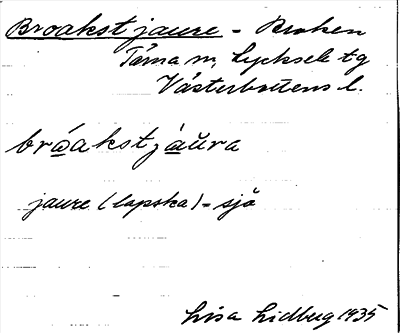 Broakstjaure - Broken
Tärna sn, Lycksele tg
Västerbottens l.
bróakstjáu̯ra
jaure (lapska) = sjö
Lisa Lidberg 1935